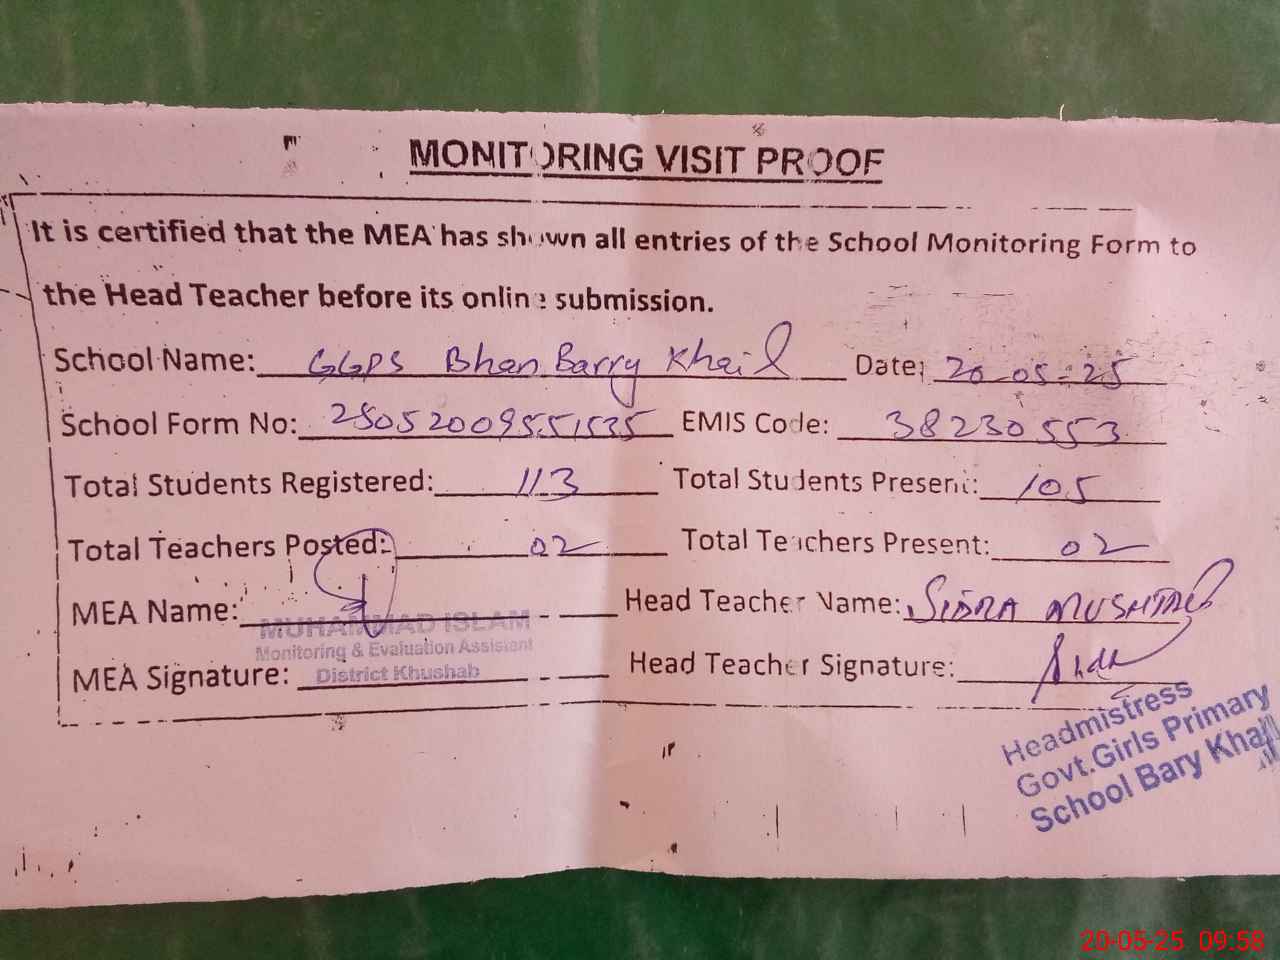 MONITORING VISIT PROOF
It is certified that the MEA has shown all entries of the School Monitoring Form to
the Head Teacher before its online submission.
School Name: GGPS Bhan Barry Khail Date: 20-05-25
School Form No: 28052009551535 EMIS Code: 38230553
Total Students Registered: 113 Total Students Present: 105
Total Teachers Posted: 02 Total Teachers Present: 02
MEA Name: Head Teacher Name: SIDRA MUSHTAQ
MUHAMMAD ISLAM
Monitoring & Evaluation Assistant
MEA Signature: District Khushab Head Teacher Signature:
Headmistress
Govt.Girls Primary
School Bary Khail
20-05-25 09:58